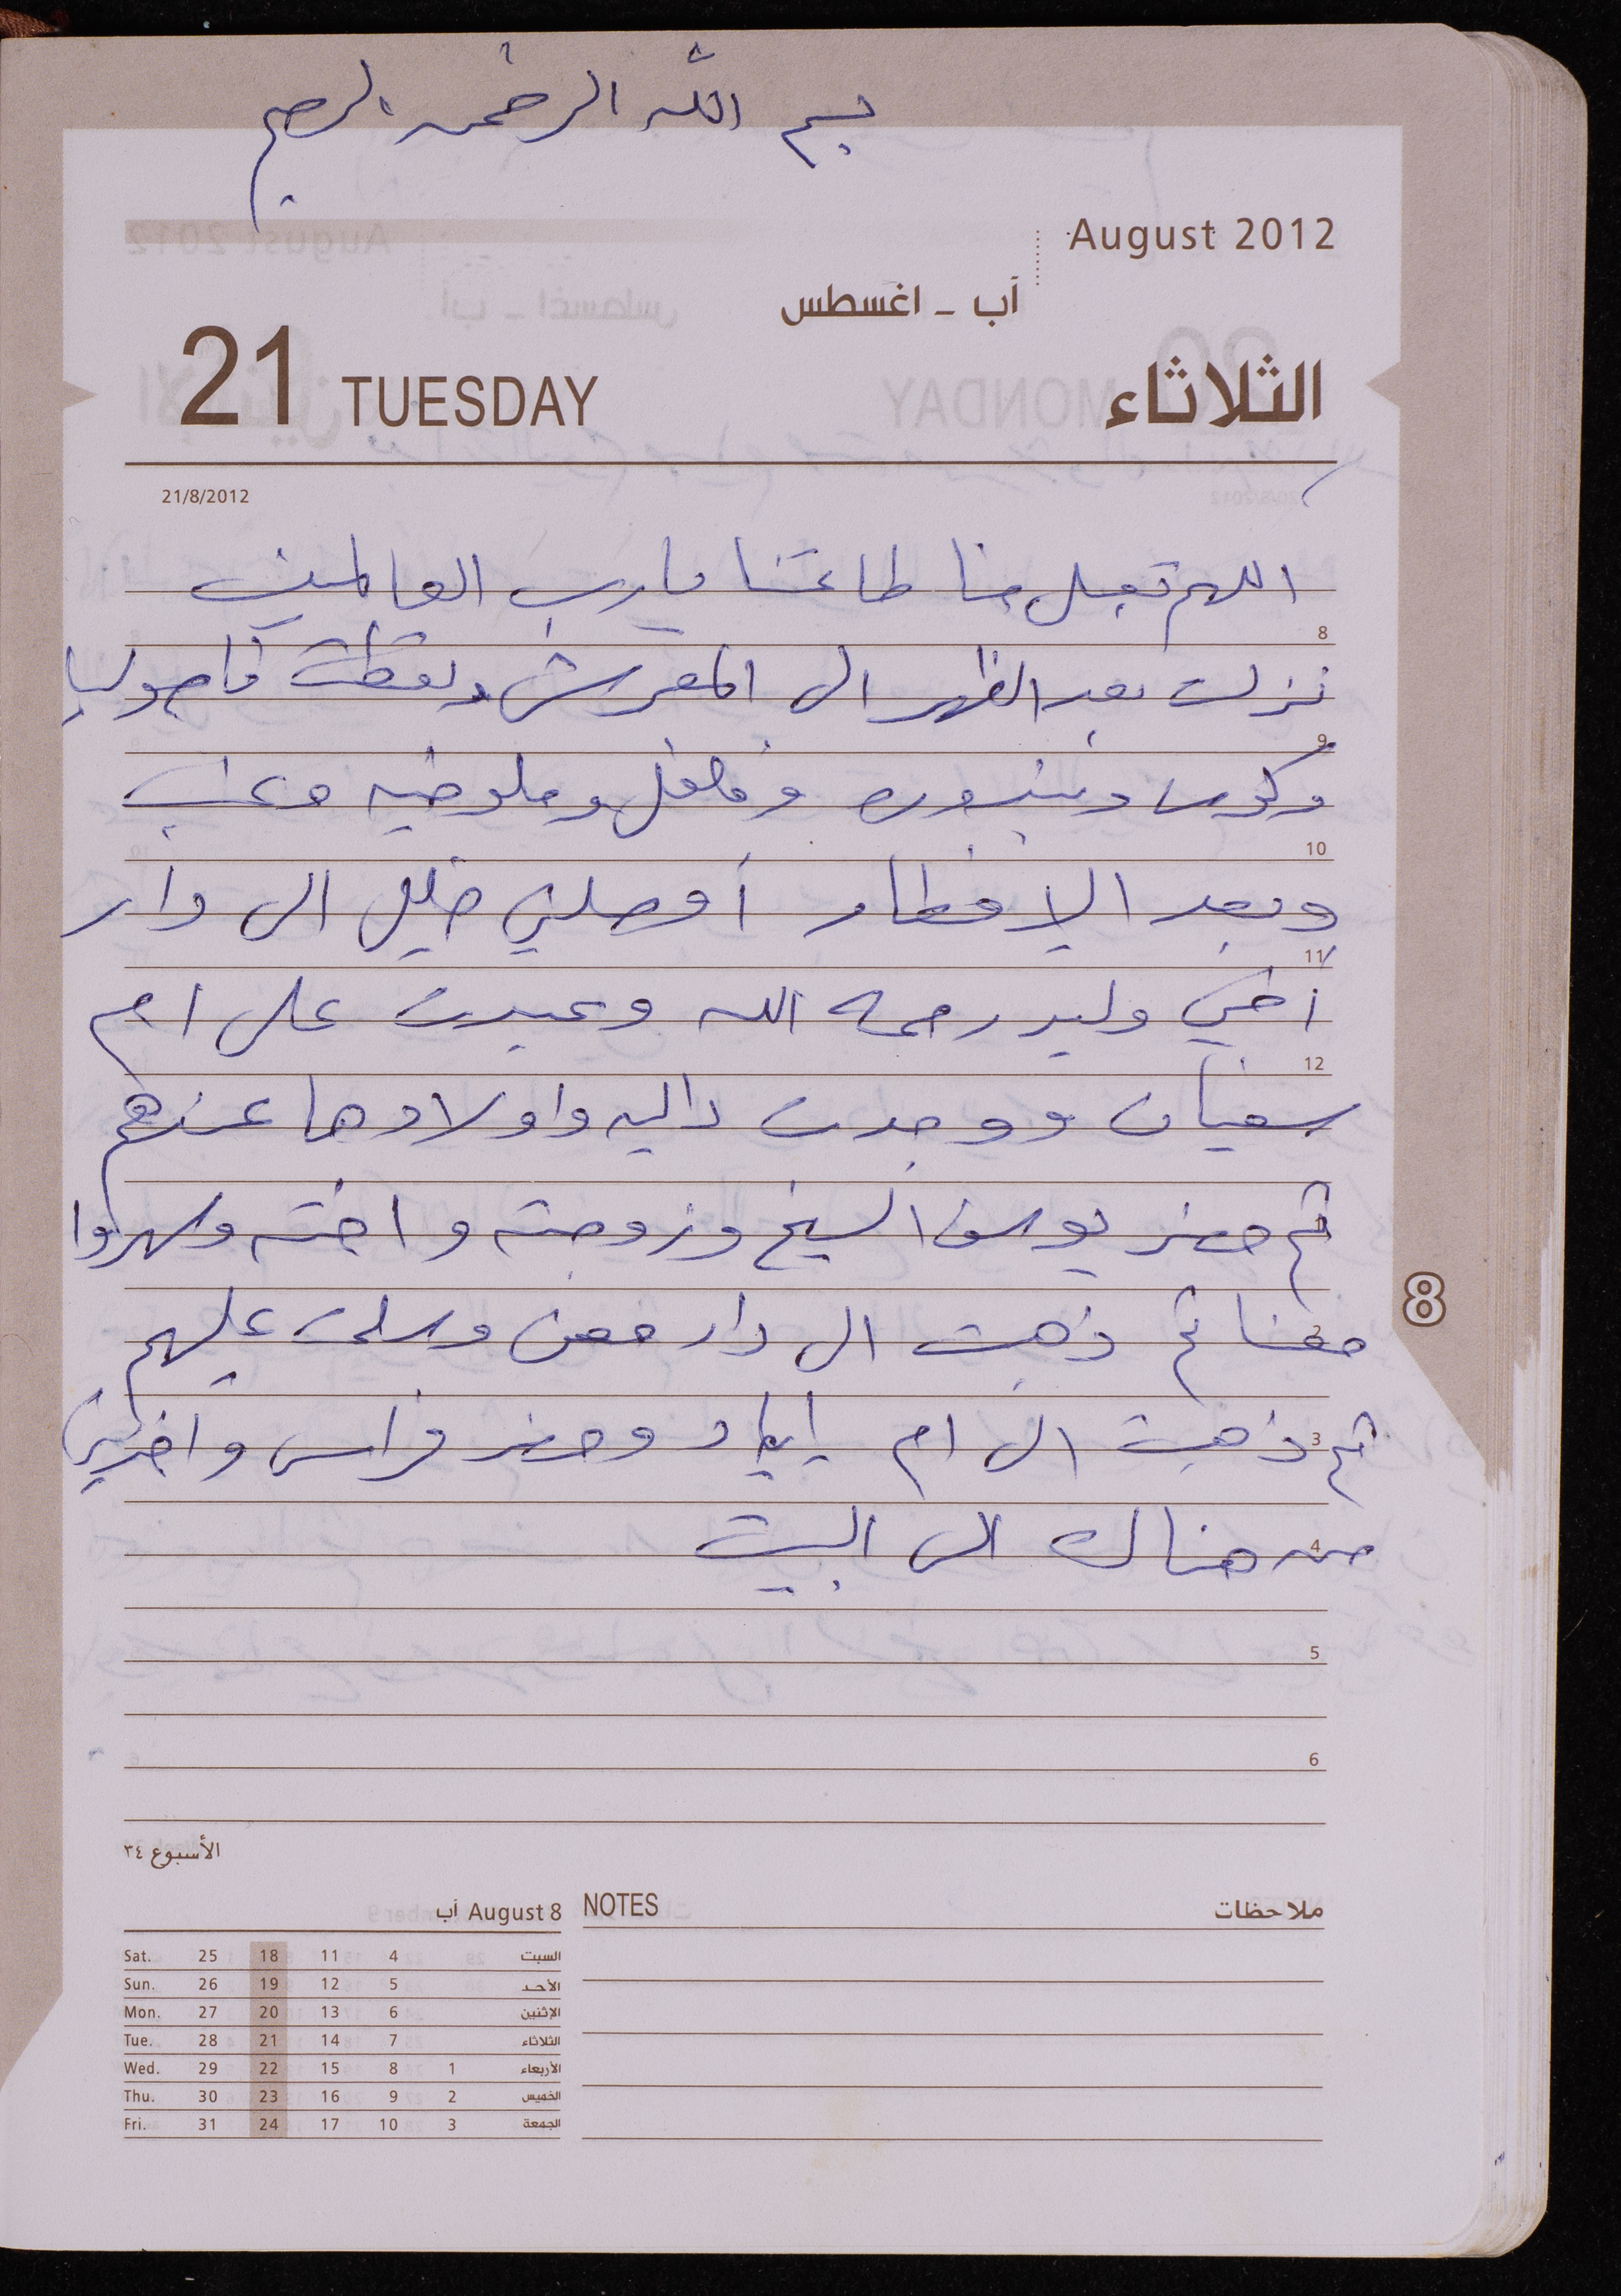 بسم الله الرحمن الرحيم
August 2012
آب - اغسطس
21 TUESDAY الثلاثاء
21/8/2012
اللهم تقبل منا طاعتنا يا رب العالمين
8
نزلت بعد الظهر الى المعرش ولقطت فاصوليا
9
وكوسا وبندوره وفلفل وملوخيه وعنب
10
وبعد الإفطار أوصلني خليل الى دار
11
أخي وليد رحمه الله وعبرت على ام
12
سفيان ووجدت داليه واولادها عندهم
1
ثم حضر يوسف الشيخ وزوجته واخته وسهروا
2
معنا ثم ذهبت الى دار معن وسلمت عليهم
3
ثم ذهبت الى ام إياد وحضر فراس واخذني
4
من هناك الى البيت
5
6
8
الأسبوع ٣٤
آب August 8
Sat. 25 18 11 4 السبت
Sun. 26 19 12 5 الأحد
Mon. 27 20 13 6 الإثنين
Tue. 28 21 14 7 الثلاثاء
Wed. 29 22 15 8 1 الأربعاء
Thu. 30 23 16 9 2 الخميس
Fri. 31 24 17 10 3 الجمعة
NOTES ملاحظات